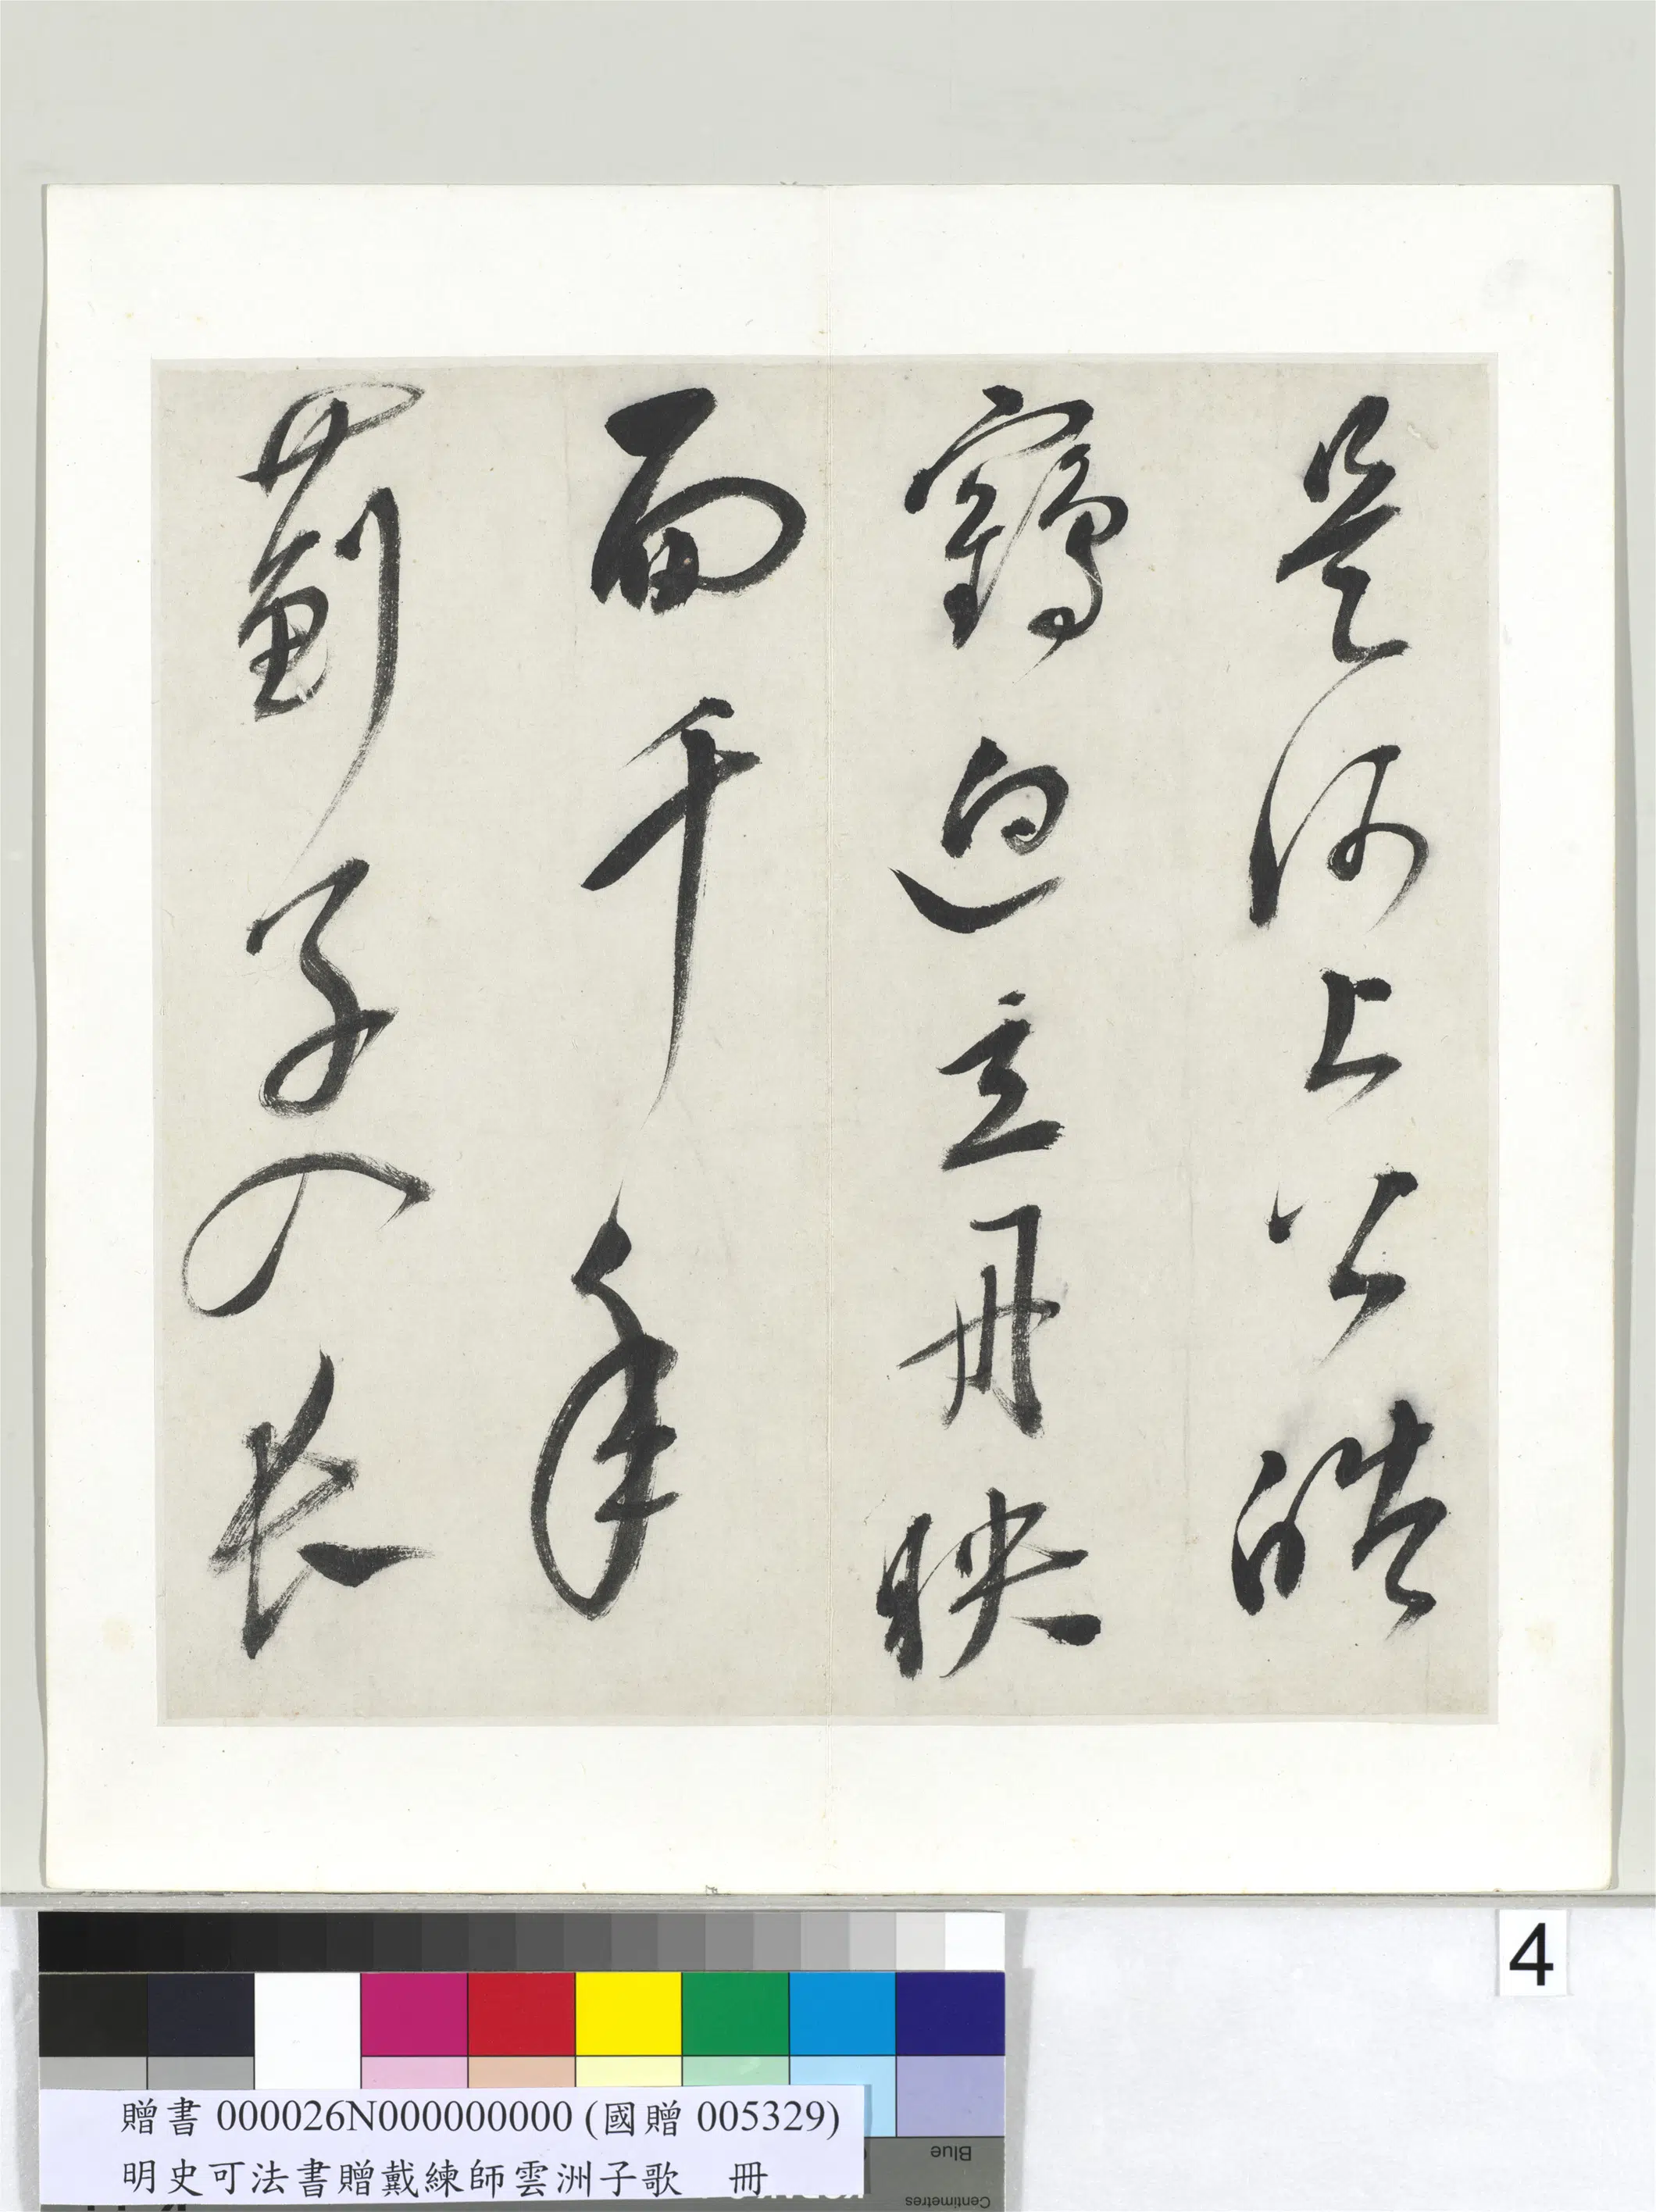 是河上公皓
鶴逈立丹映
面千年
薊子入長
4
贈書 000026N000000000 (國贈 005329)
明史可法書贈戴練師雲洲子歌 冊
Blue
Centimetres